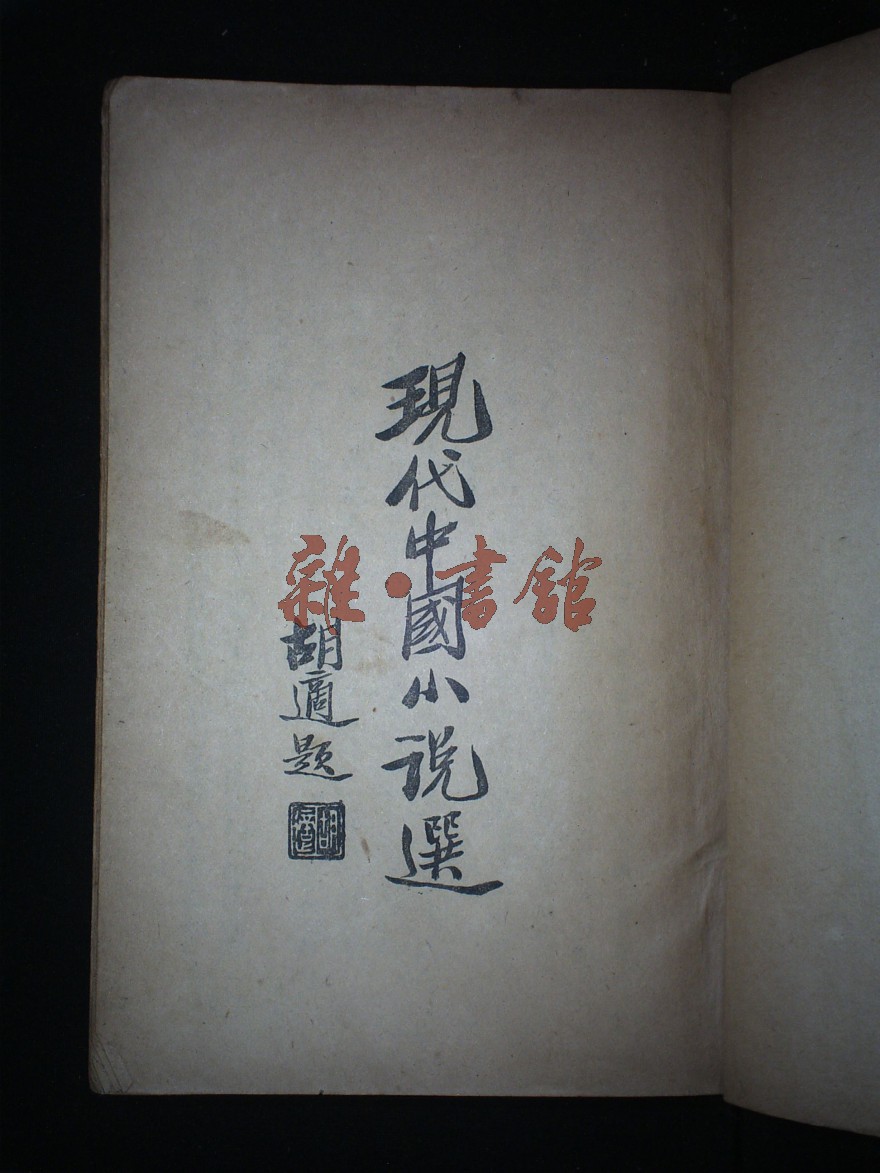 現代中國小说選
胡適題
胡適
雜·書館